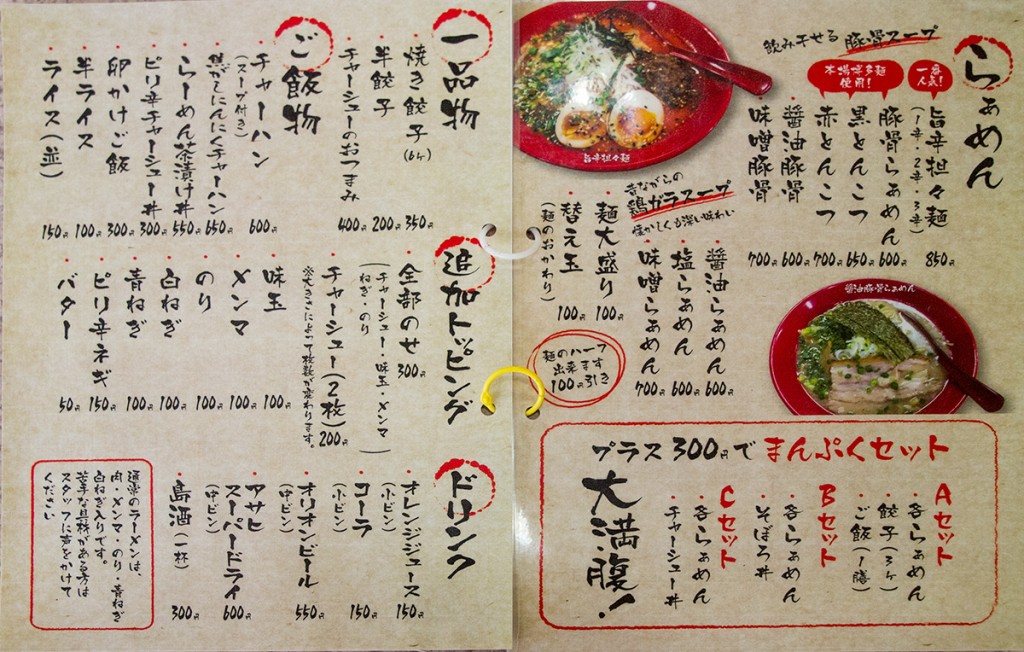 らぁめん
飲み干せる 豚骨スープ
一番人気！
旨辛担々麺
（1辛・2辛・3辛）
850円
豚骨らぁめん
600円
本場博多麺使用！
黒とんこつ
650円
赤とんこつ
700円
醤油豚骨
600円
味噌豚骨
700円
旨辛担々麺
昔ながらの
鶏ガラスープ
懐かしくも深い味わい
醤油らぁめん
600円
塩らぁめん
600円
味噌らぁめん
700円
麺大盛り
100円
替え玉
（麺のおかわり）
100円
麺のハーフ
出来ます
100円引き
醤油豚骨らぁめん
プラス300円でまんぷくセット
Aセット
・各らぁめん
・餃子（3ヶ）
・ご飯（1膳）
Bセット
・各らぁめん
・そぼろ丼
Cセット
・各らぁめん
・チャーシュー丼
大満腹！
一品物
焼き餃子（6ヶ）
350円
半餃子
200円
チャーシューのおつまみ
400円
ご飯物
チャーハン
（スープ付き）
600円
焦がしにんにくチャーハン
650円
らーめん茶漬け丼
550円
ピリ辛チャーシュー丼
300円
卵かけご飯
300円
半ライス
100円
ライス（並）
150円
追加トッピング
全部のせ
（チャーシュー・味玉・メンマ
ねぎ・のり）
300円
チャーシュー（2枚）
※大きさによって枚数が変わります。
200円
味玉
100円
メンマ
100円
のり
100円
白ねぎ
100円
青ねぎ
100円
ピリ辛ネギ
150円
バター
50円
ドリンク
オレンジジュース
（小ビン）
150円
コーラ
（小ビン）
150円
オリオンビール
（中ビン）
550円
アサヒ
スーパードライ
（中ビン）
600円
島酒（一杯）
300円
通常のラーメンは、
肉・メンマ・のり・青ねぎ
白ねぎ入りです。
苦手な具材がある方は
スタッフに声をかけて
ください